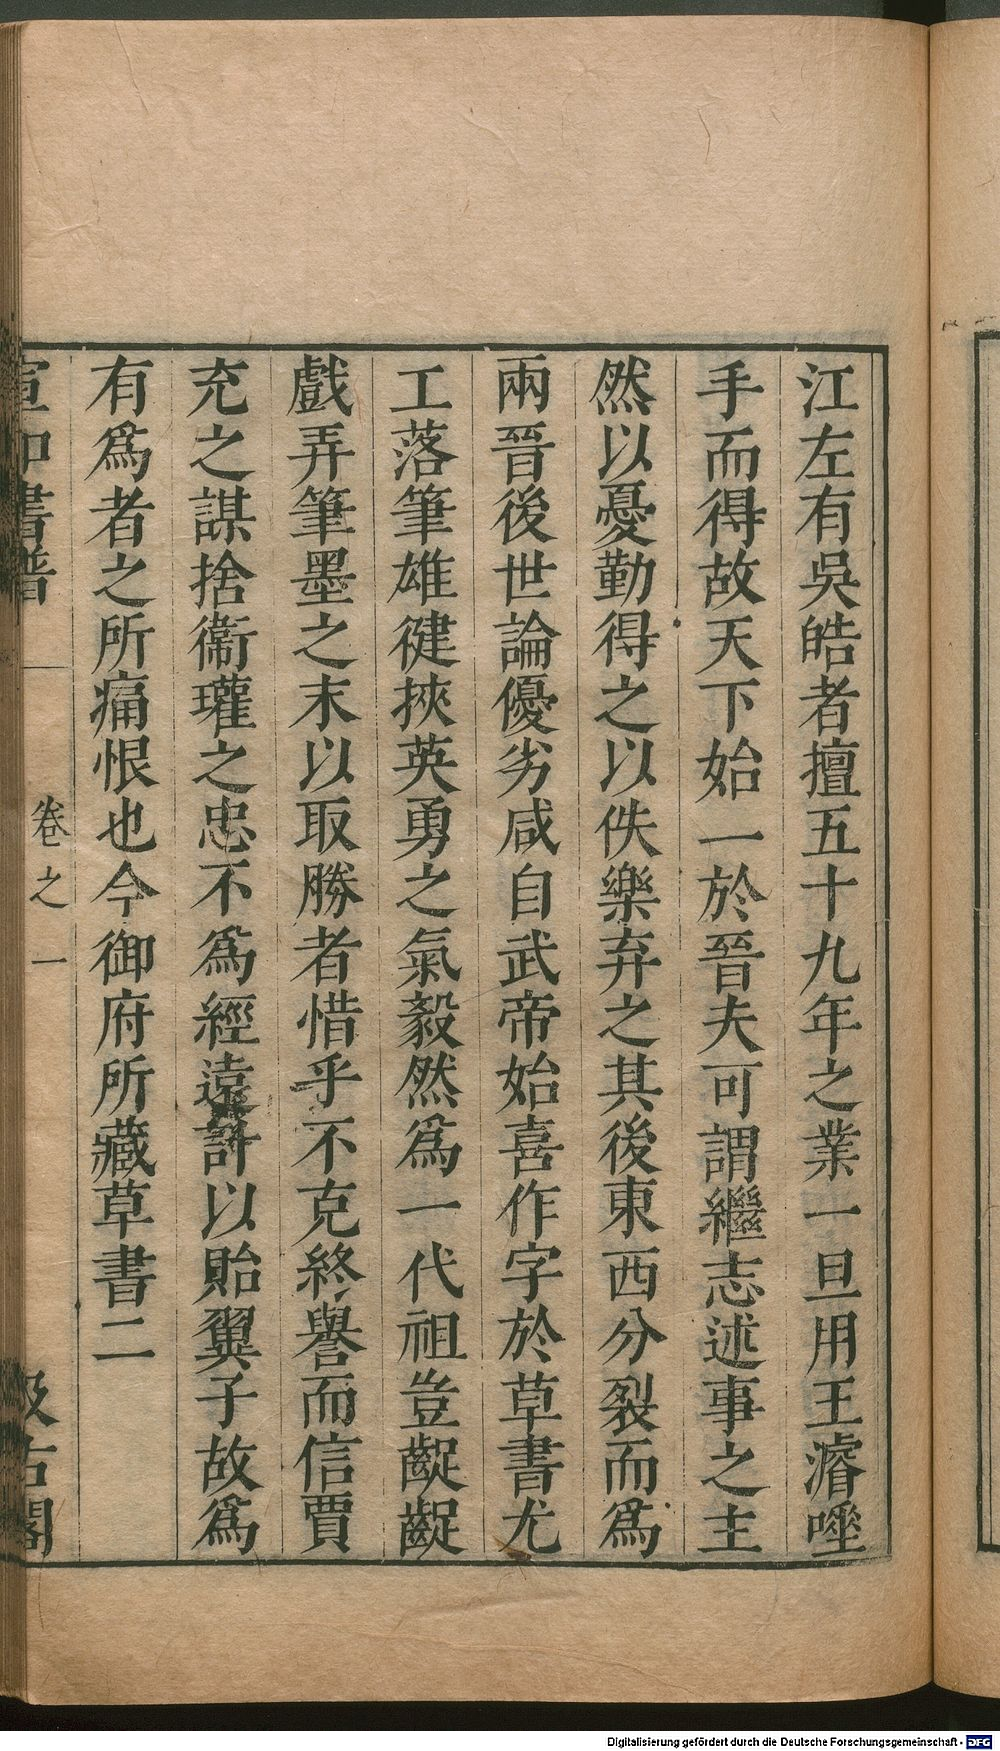 江左有吳皓者擅五十九年之業一旦用王濬唾
手而得故天下始一於晉夫可謂繼志述事之主
然以憂勤得之以佚樂弃之其後東西分裂而爲
兩晉後世論優劣咸自武帝始喜作字於草書尤
工落筆雄健挾英勇之氣毅然爲一代祖豈齪齪
戲弄筆墨之末以取勝者惜乎不克終譽而信賈
充之謀捨衞瓘之忠不爲經遠計以貽翼子故爲
有爲者之所痛恨也今御府所藏草書二
宣和書譜 卷之一 汲古閣
Digitalisierung gefördert durch die Deutsche Forschungsgemeinschaft - DFG